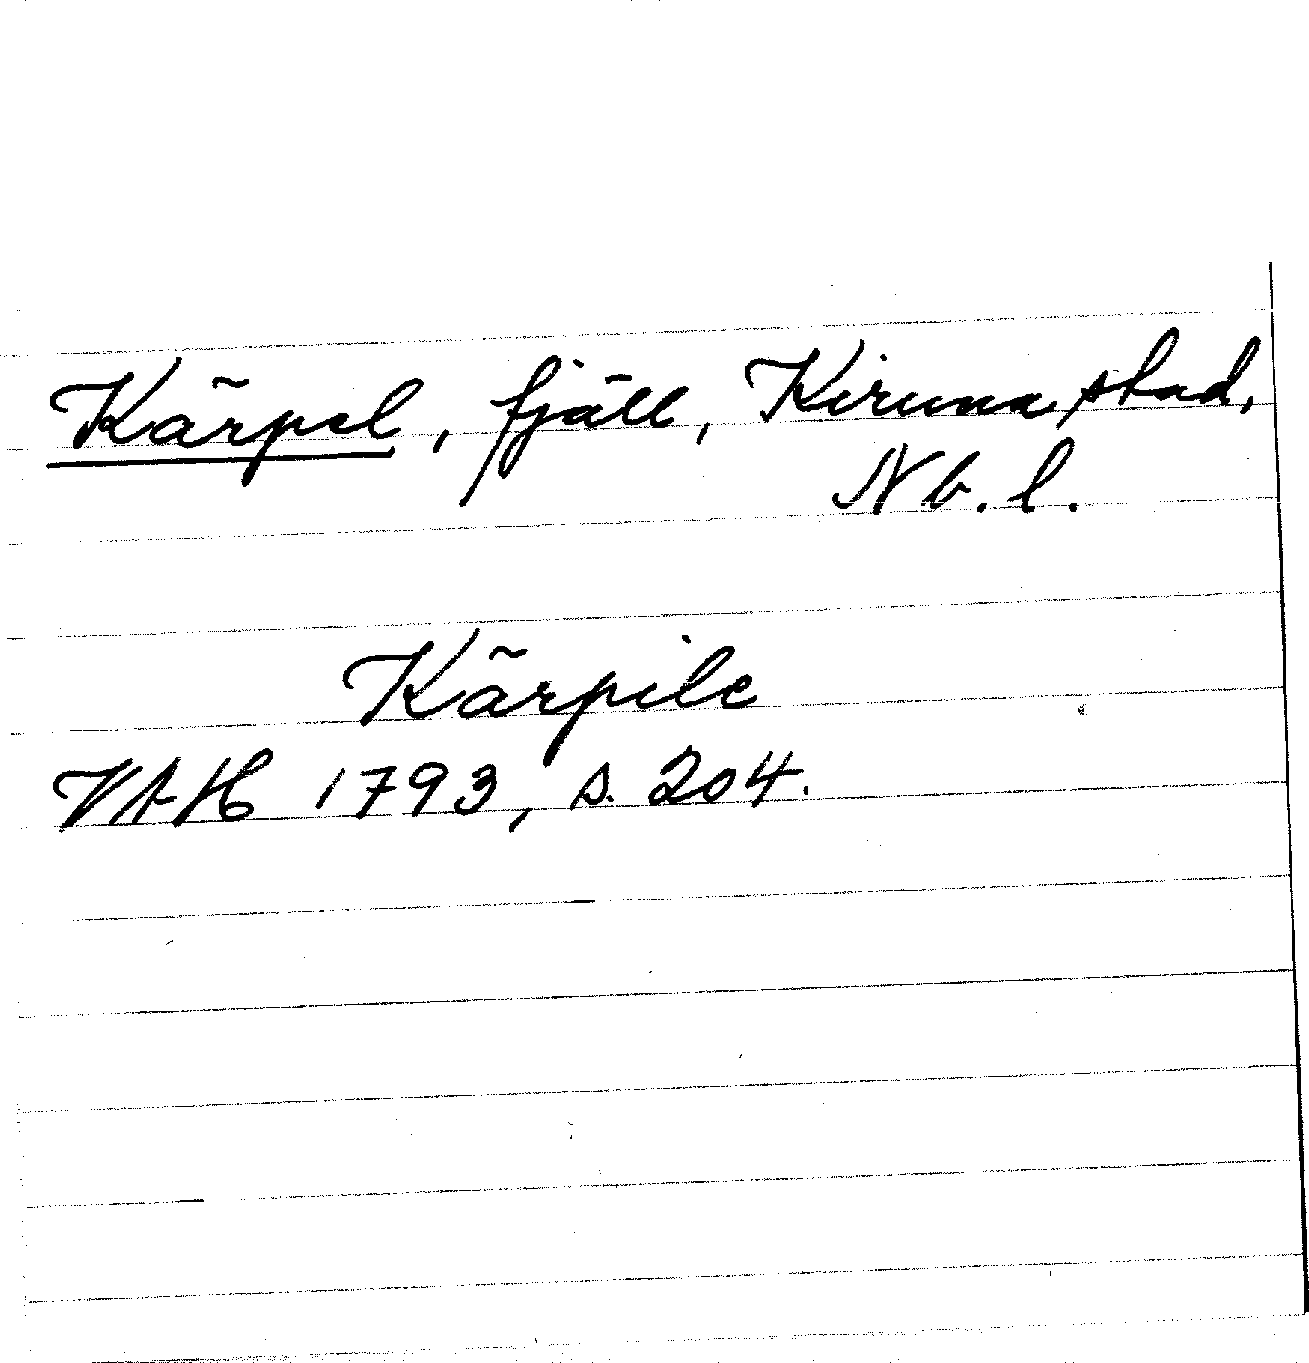 Kärpel, fjäll, Kiruna stad,
Nb. l.
Kärpile
VAH 1793, s. 204.